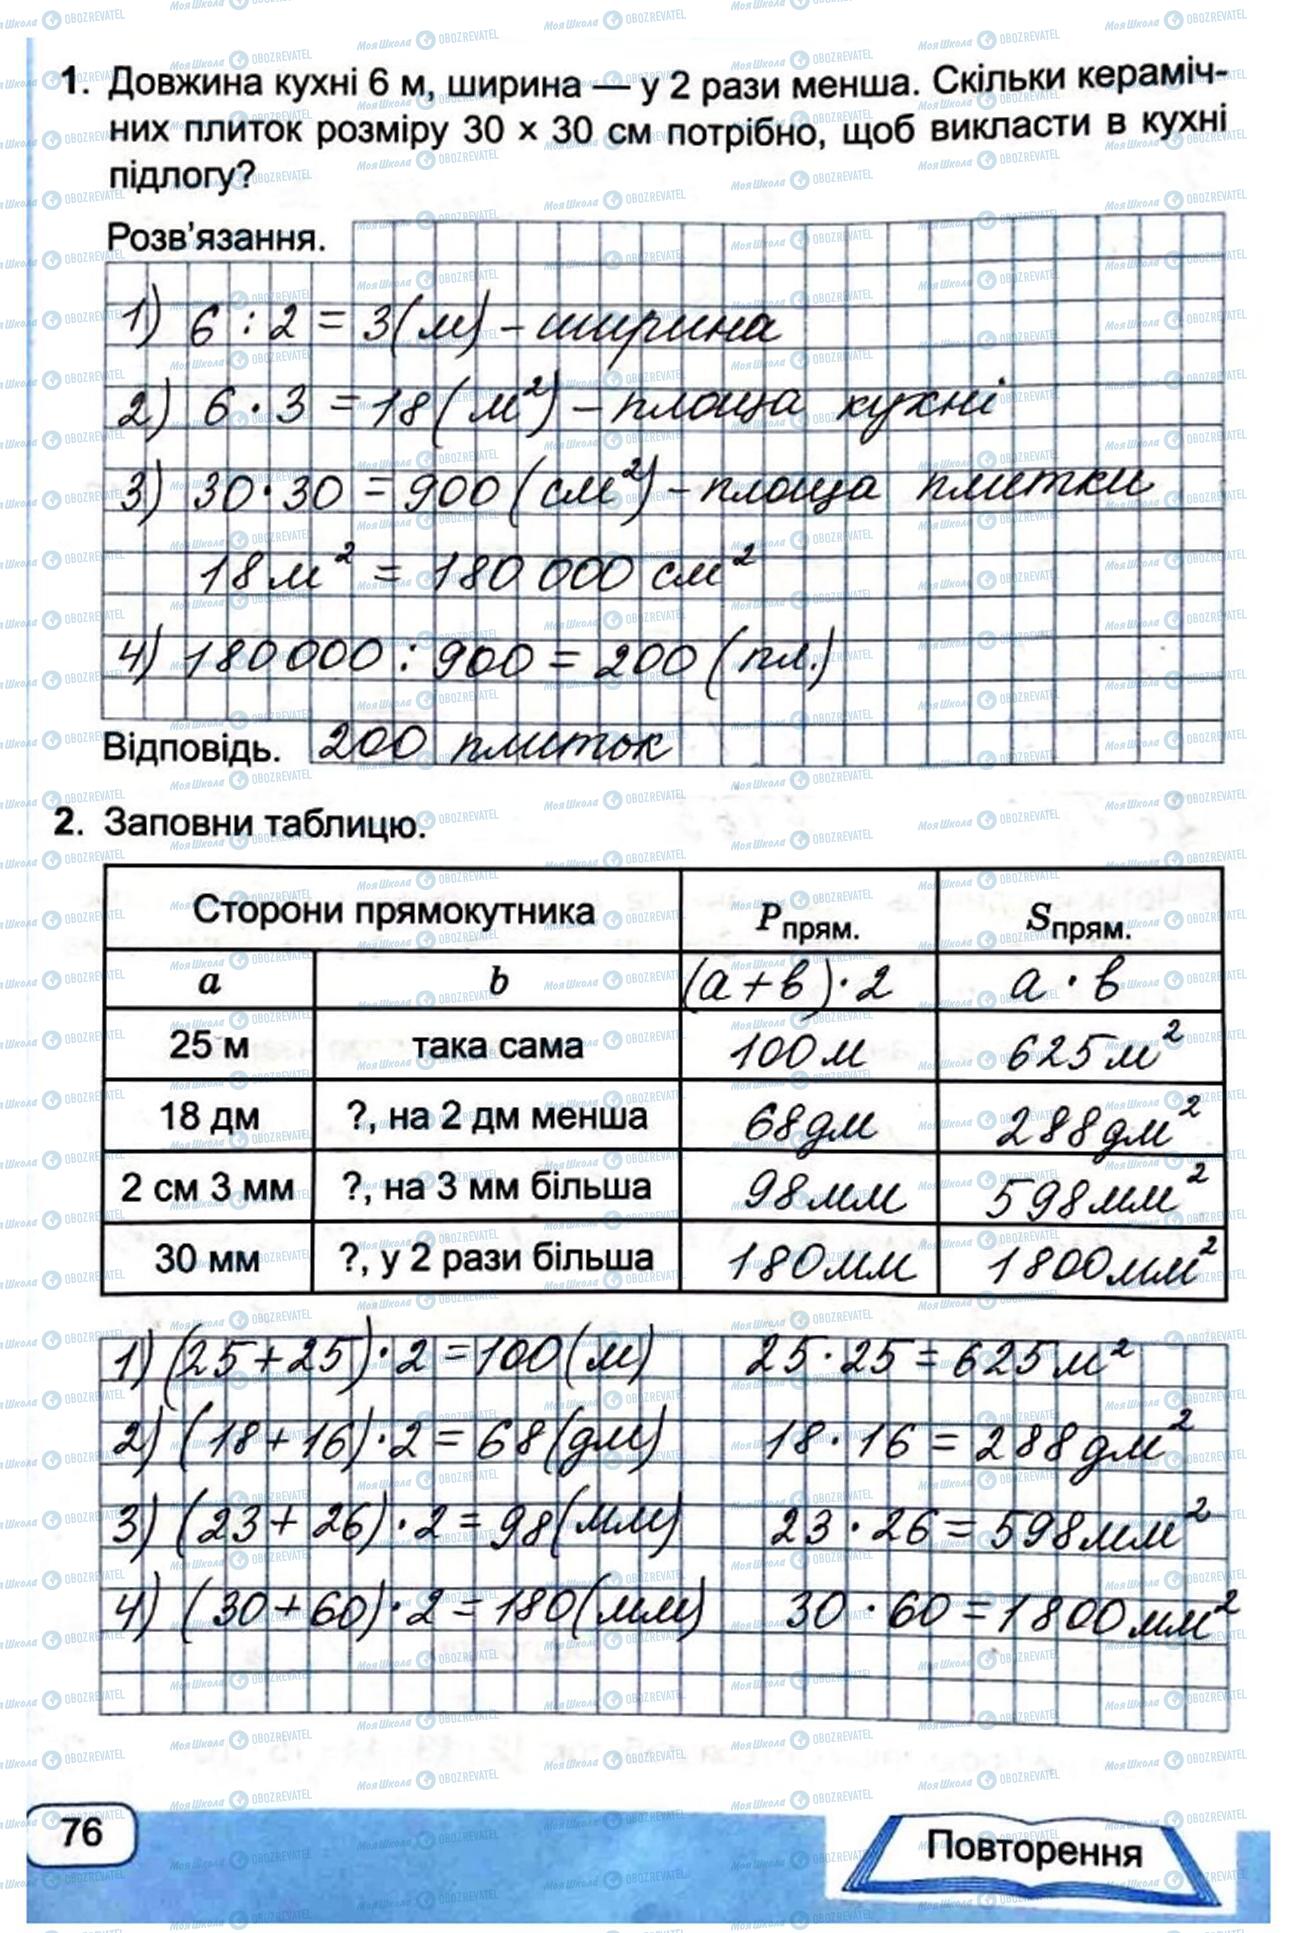 1. Довжина кухні 6 м, ширина — у 2 рази менша. Скільки кераміч-
них плиток розміру 30 × 30 см потрібно, щоб викласти в кухні
підлогу?
Розв'язання.
1) 6 : 2 = 3 (м) - ширина
2) 6 · 3 = 18 (м²) - площа кухні
3) 30 · 30 = 900 (см²) - площа плитки
18 м² = 180 000 см²
4) 180 000 : 900 = 200 (пл.)
Відповідь. 200 плиток
2. Заповни таблицю.
Сторони прямокутника P прям. S прям.
a b (а + в) · 2 а · в
25 м така сама 100 м 625 м²
18 дм ?, на 2 дм менша 68 дм 288 дм²
2 см 3 мм ?, на 3 мм більша 98 мм 598 мм²
30 мм ?, у 2 рази більша 180 мм 1800 мм²
1) (25 + 25) · 2 = 100 (м) 25 · 25 = 625 м²
2) (18 + 16) · 2 = 68 (дм) 18 · 16 = 288 дм²
3) (23 + 26) · 2 = 98 (мм) 23 · 26 = 598 мм²
4) (30 + 60) · 2 = 180 (мм) 30 · 60 = 1800 мм²
76
Повторення
МояШкола OBOZREVATEL